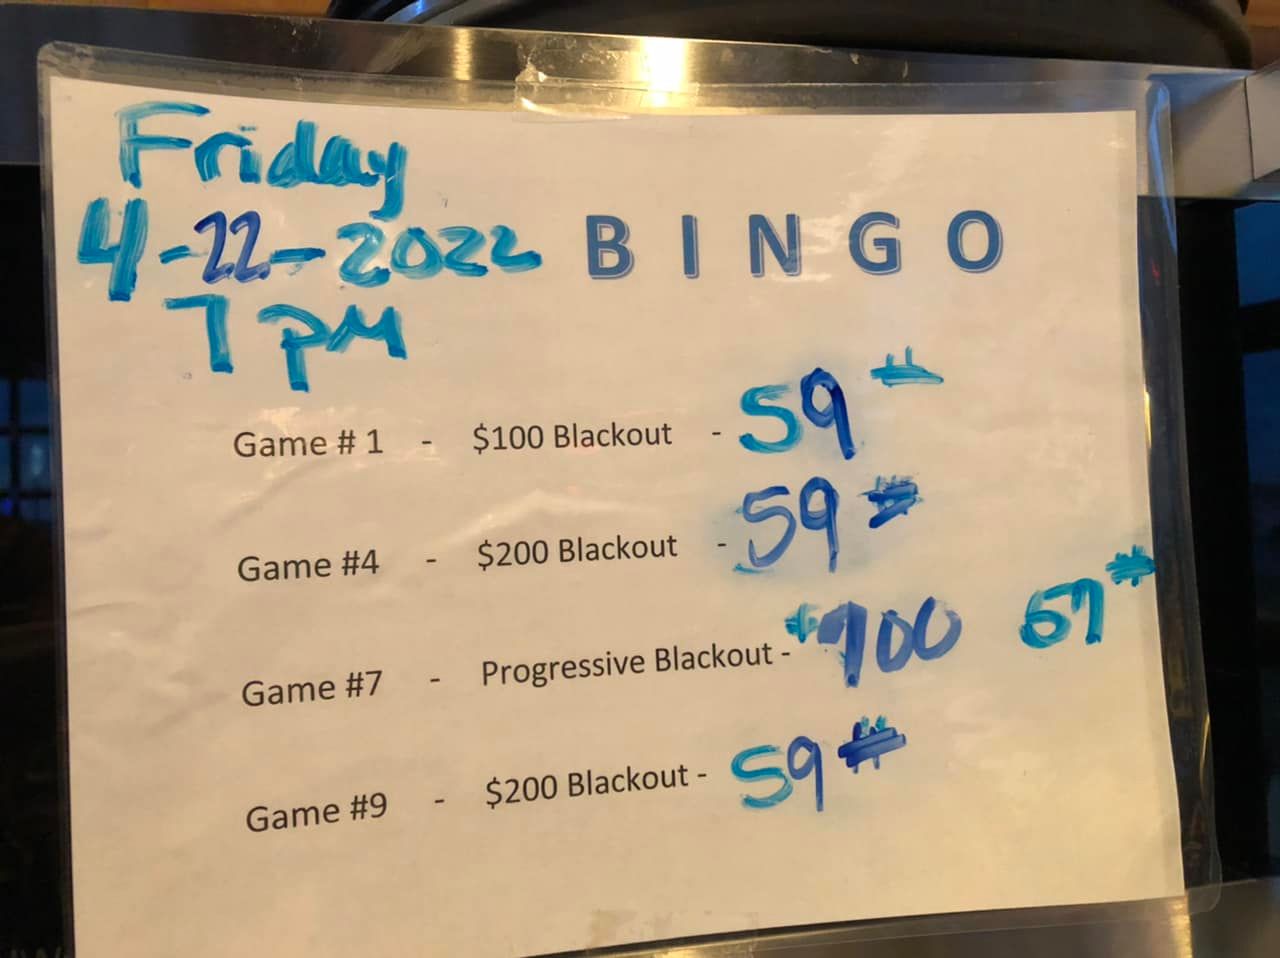 Friday
4-22-2022
7 PM
BINGO
Game # 1 - $100 Blackout - 59 #
Game #4 - $200 Blackout - 59 #
Game #7 - Progressive Blackout - $700 57 #
Game #9 - $200 Blackout - 59 #